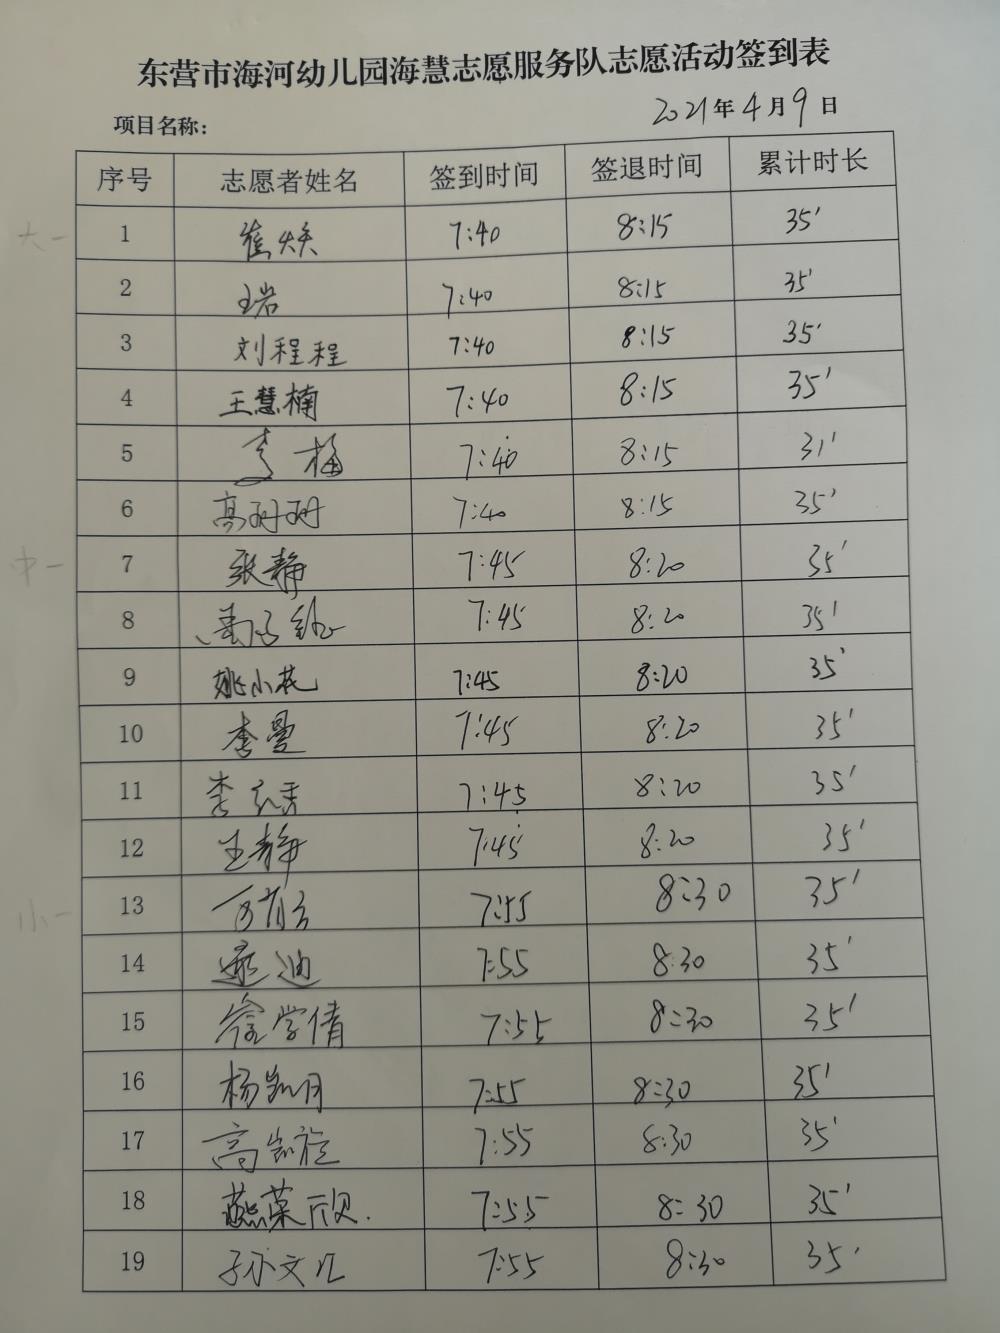 东营市海河幼儿园海慧志愿服务队志愿活动签到表
项目名称： 2021年4月9日
序号 志愿者姓名 签到时间 签退时间 累计时长
大一 1 崔焕 7:40 8:15 35'
2 王岩 7:40 8:15 35'
3 刘程程 7:40 8:15 35'
4 王慧楠 7:40 8:15 35'
5 李梅 7:40 8:15 31'
6 高珂珂 7:40 8:15 35'
中一 7 张静 7:45 8:20 35'
8 7:45 8:20 35'
9 姚小花 7:45 8:20 35'
10 李曼 7:45 8:20 35'
11 李 7:45 8:20 35'
12 王静 7:45 8:20 35'
小一 13 7:55 8:30 35'
14 迪 7:55 8:30 35'
15 徐学倩 7:55 8:30 35'
16 杨凯月 7:55 8:30 35'
17 高凯旋 7:55 8:30 35'
18 燕荣欣 7:55 8:30 35'
19 孙文汇 7:55 8:30 35'